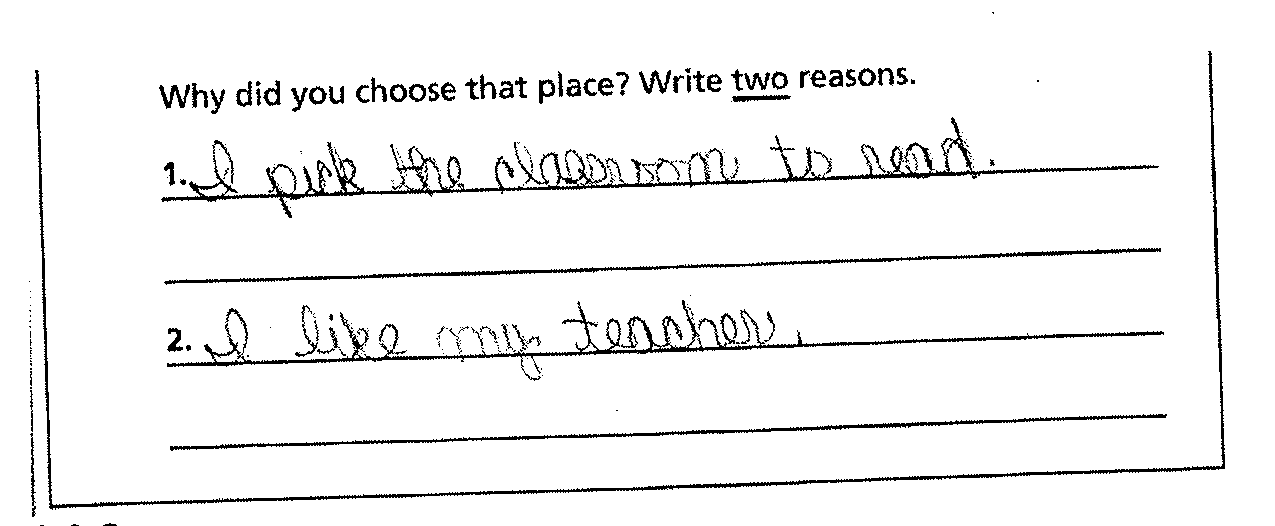 Why did you choose that place? Write two reasons.
1. I pick the classroom to read.
2. I like my teacher.